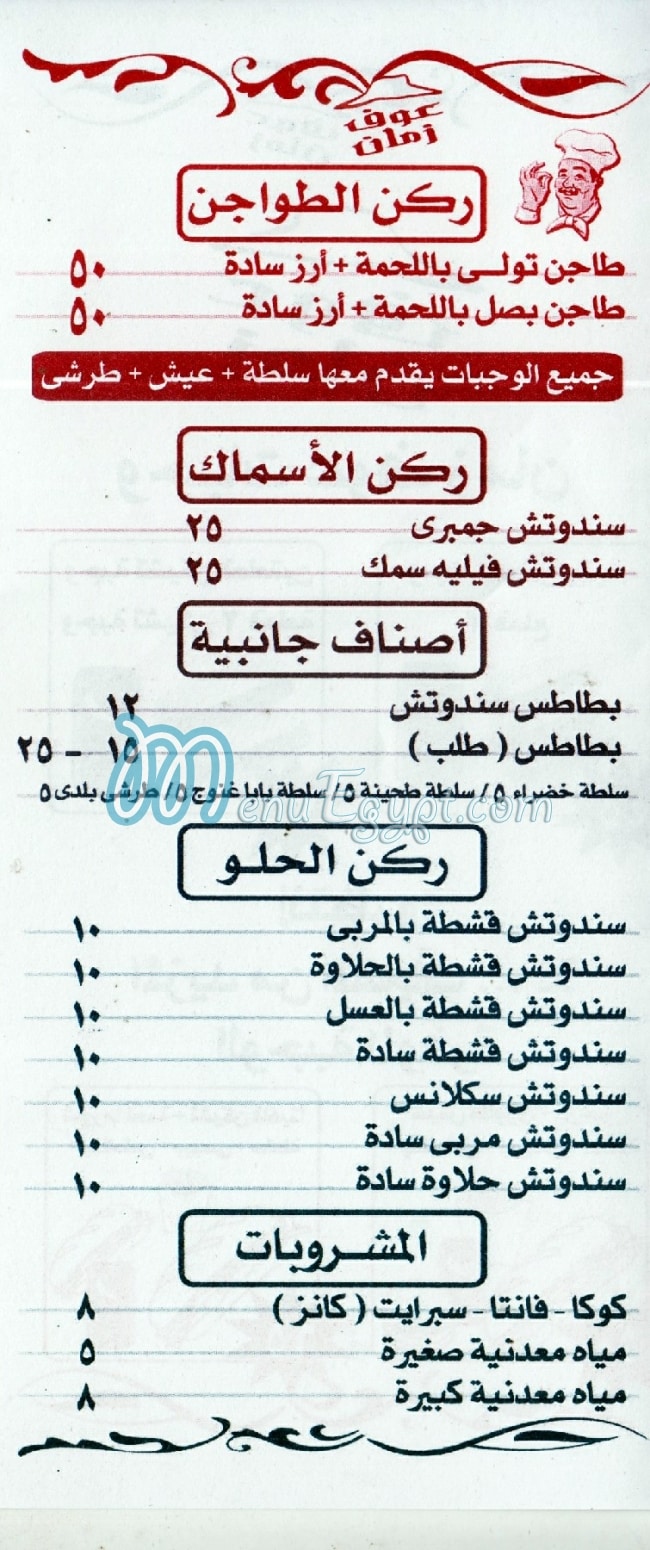 عوف
زمان
ركن الطواجن
طاجن تولى باللحمة + أرز سادة ٥٠
طاجن بصل باللحمة + أرز سادة ٥٠
جميع الوجبات يقدم معها سلطة + عيش + طرشى
ركن الأسماك
سندوتش جمبرى ٢٥
سندوتش فيليه سمك ٢٥
أصناف جانبية
بطاطس سندوتش ١٢
بطاطس ( طلب ) ١٥ - ٢٥
سلطة خضراء ٥/ سلطة طحينة ٥/ سلطة بابا غنوج ٥/ طرشى بلدى ٥
MenuEgypt.com
ركن الحلو
سندوتش قشطة بالمربى ١٠
سندوتش قشطة بالحلاوة ١٠
سندوتش قشطة بالعسل ١٠
سندوتش قشطة سادة ١٠
سندوتش سكلانس ١٠
سندوتش مربى سادة ١٠
سندوتش حلاوة سادة ١٠
المشروبات
كوكا - فانتا - سبرايت ( كانز ) ٨
مياه معدنية صغيرة ٥
مياه معدنية كبيرة ٨